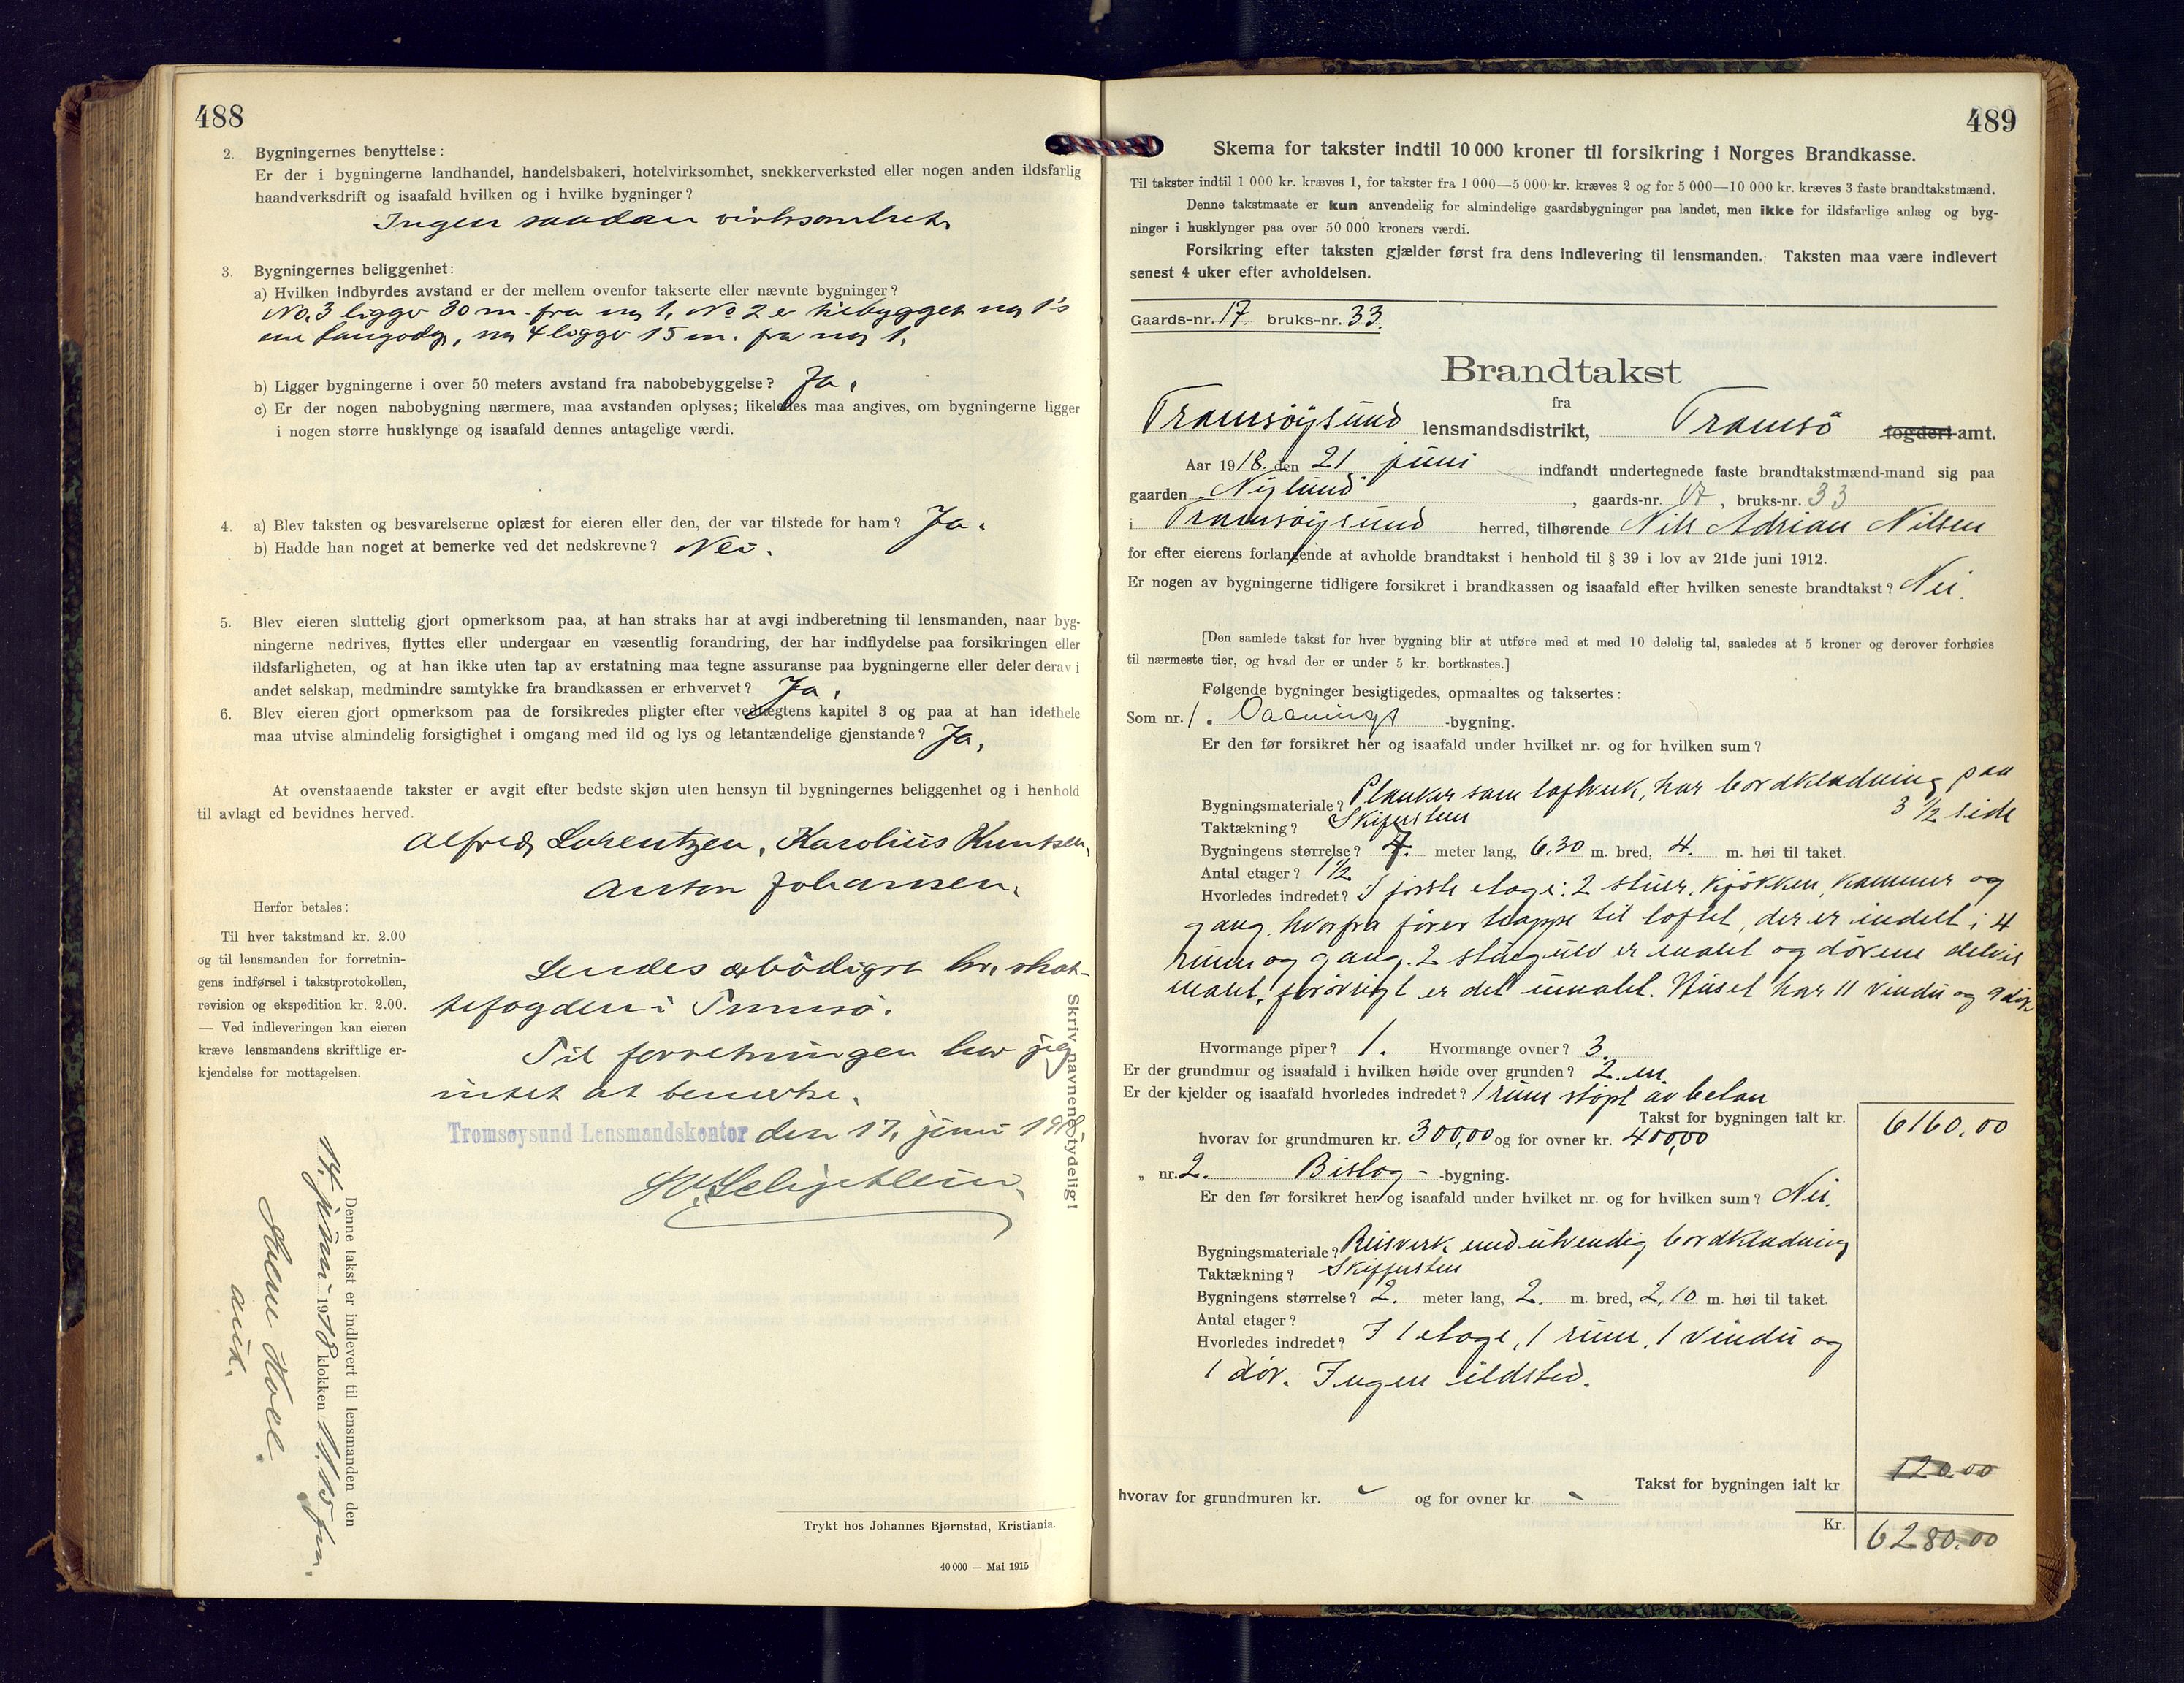 488
2. Bygningernes benyttelse:
Er der i bygningerne landhandel, handelsbakeri, hotelvirksomhet, snekkerverksted eller nogen anden ildsfarlig
haandverksdrift og isaafald hvilken og i hvilke bygninger?
Ingen saadan virksomhet
3. Bygningernes beliggenhet:
a) Hvilken indbyrdes avstand er der mellem ovenfor takserte eller nævnte bygninger?
No. 3 ligger 30 m. fra nr 1, No 2 er tilbygget nr 1's
ene langvæg, nr 4 ligger 15 m. fra nr 1.
b) Ligger bygningerne i over 50 meters avstand fra nabobebyggelse? Ja.
c) Er der nogen nabobygning nærmere, maa avstanden oplyses; likeledes maa angives, om bygningerne ligger
i nogen større husklynge og isaafald dennes antagelige værdi.
4. a) Blev taksten og besvarelserne oplæst for eieren eller den, der var tilstede for ham? Ja.
b) Hadde han noget at bemerke ved det nedskrevne? Nei.
5. Blev eieren sluttelig gjort opmerksom paa, at han straks har at avgi indberetning til lensmanden, naar byg-
ningerne nedrives, flyttes eller undergaar en væsentlig forandring, der har indflydelse paa forsikringen eller
ildsfarligheten, og at han ikke uten tap av erstatning maa tegne assuranse paa bygningerne eller deler derav i
andet selskap, medmindre samtykke fra brandkassen er erhvervet? Ja.
6. Blev eieren gjort opmerksom paa de forsikredes pligter efter vedtægtens kapitel 3 og paa at han idethele
maa utvise almindelig forsigtighet i omgang med ild og lys og letantændelige gjenstande? Ja,
At ovenstaaende takster er avgit efter bedste skjøn uten hensyn til bygningernes beliggenhet og i henhold
til avlagt ed bevidnes herved.
Alfred Lorentzen, Karolius Kuntsen,
Anton Johansen.
Herfor betales:
Til hver takstmand kr. 2.00
og til lensmanden for forretnin-
gens indførsel i takstprotokollen,
revision og ekspedition kr. 2.00.
— Ved indleveringen kan eieren
kræve lensmandens skriftlige er-
kjendelse for mottagelsen.
Sendes ærbödigst hr. skat-
tefogden i Tromsö.
Til forretningen har jeg
intet at bemerke.
Tromsøysund Lensmandskontor den 17. juni 1918
Skriv navnene tydelig!
Denne takst er indlevert til lensmanden den
14. juni 1918 klokken 11.15 fm.
Trykt hos Johannes Bjørnstad, Kristiania.
40 000 — Mai 1915
489
Skema for takster indtil 10 000 kroner til forsikring i Norges Brandkasse.
Til takster indtil 1 000 kr. kræves 1, for takster fra 1 000—5 000 kr. kræves 2 og for 5 000—10 000 kr. kræves 3 faste brandtakstmænd.
Denne takstmaate er kun anvendelig for almindelige gaardsbygninger paa landet, men ikke for ildsfarlige anlæg og byg-
ninger i husklynger paa over 50 000 kroners værdi.
Forsikring efter taksten gjælder først fra dens indlevering til lensmanden. Taksten maa være indlevert
senest 4 uker efter avholdelsen.
Gaards-nr. 17. bruks-nr. 33.
Brandtakst
fra
Tromsöysund lensmandsdistrikt, Tromsö fogderi amt.
Aar 1918. den 21 juni indfandt undertegnede faste brandtakstmænd-mand sig paa
gaarden "Nylund" , gaards-nr. 17, bruks-nr. 33
i Tromsöysund herred, tilhørende Nils Adrian Nilsen
for efter eierens forlangende at avholde brandtakst i henhold til § 39 i lov av 21de juni 1912.
Er nogen av bygningerne tidligere forsikret i brandkassen og isaafald efter hvilken seneste brandtakst? Nei.
[Den samlede takst for hver bygning blir at utføre med et med 10 delelig tal, saaledes at 5 kroner og derover forhøies
til nærmeste tier, og hvad der er under 5 kr. bortkastes.]
Følgende bygninger besigtigedes, opmaaltes og taksertes:
Som nr. 1. Vaanings -bygning.
Er den før forsikret her og isaafald under hvilket nr. og for hvilken sum?
Bygningsmateriale? Planker som loftverk, har bordklædning paa
3 1/2 side
Taktækning? Skifersten
Bygningens størrelse? 7. meter lang, 6.30 m. bred, 4. m. høi til taket.
Antal etager? 1 1/2
Hvorledes indredet? I første etage: 2 stuer, kjökken, kammer og
gang, hvorfra förer trappe til loftet, der er indelt i 4
rum og gang. 2 stuegulv er malet og dörene delvis
malet, förövrigt er det umalet. Huset har 11 vindu og 9 dör.
Hvormange piper? 1. Hvormange ovner? 3.
Er der grundmur og isaafald i hvilken høide over grunden? 2. m.
Er der kjelder og isaafald hvorledes indredet? 1 rum stöpt av beton
Takst for bygningen ialt kr. 6160.00
hvorav for grundmuren kr. 300,00 og for ovner kr. 400,00
" nr. 2. Bislag- -bygning.
Er den før forsikret her og isaafald under hvilket nr. og for hvilken sum? Nei.
Bygningsmateriale? Reisverk med utvendig bordklædning
Taktækning? Skifersten
Bygningens størrelse? 2. meter lang, 2. m. bred, 2,10 m. høi til taket.
Antal etager?
Hvorledes indredet? I 1 etage, 1 rum, 1 vindu og
1 dör. Ingen ildsted.
Takst for bygningen ialt kr 120.00
hvorav for grundmuren kr. - og for ovner kr. -
Kr. 6280.00